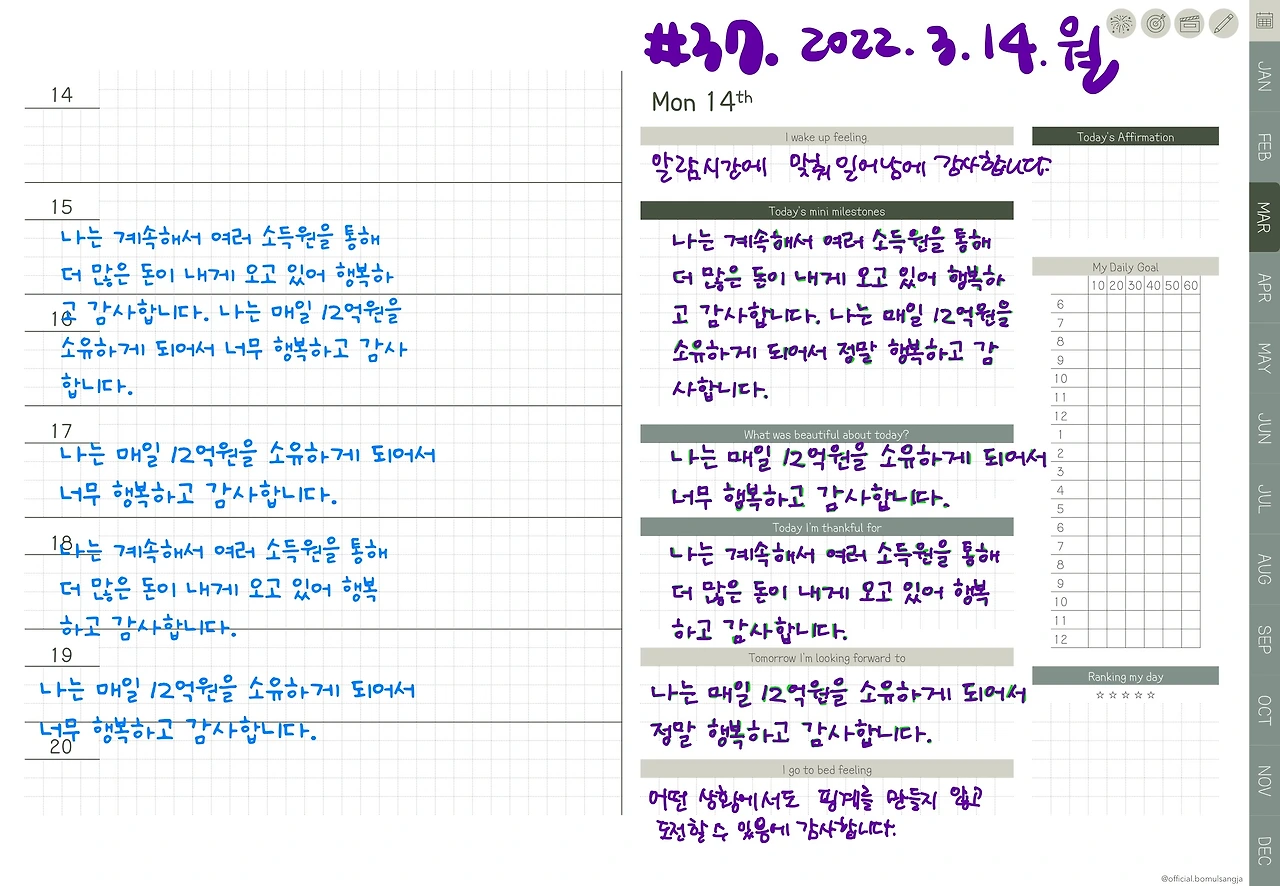 #37. 2022. 3. 14. 월
14
15
나는 계속해서 여러 소득원을 통해
더 많은 돈이 내게 오고 있어 행복하
16
고 감사합니다. 나는 매일 12억원을
소유하게 되어서 너무 행복하고 감사
합니다.
17
나는 매일 12억원을 소유하게 되어서
너무 행복하고 감사합니다.
18
나는 계속해서 여러 소득원을 통해
더 많은 돈이 내게 오고 있어 행복
하고 감사합니다.
19
나는 매일 12억원을 소유하게 되어서
너무 행복하고 감사합니다.
20
Mon 14th
I wake up feeling
알람시간에 맞춰 일어남에 감사합니다.
Today's mini milestones
나는 계속해서 여러 소득원을 통해
더 많은 돈이 내게 오고 있어 행복하
고 감사합니다. 나는 매일 12억원을
소유하게 되어서 정말 행복하고 감
사합니다.
What was beautiful about today?
나는 매일 12억원을 소유하게 되어서
너무 행복하고 감사합니다.
Today I'm thankful for
나는 계속해서 여러 소득원을 통해
더 많은 돈이 내게 오고 있어 행복
하고 감사합니다.
Tomorrow I'm looking forward to
나는 매일 12억원을 소유하게 되어서
정말 행복하고 감사합니다.
I go to bed feeling
어떤 상황에서도 핑계를 만들지 않고
도전할 수 있음에 감사합니다.
Today's Affirmation
My Daily Goal
10 20 30 40 50 60
6
7
8
9
10
11
12
1
2
3
4
5
6
7
8
9
10
11
12
Ranking my day
☆☆☆☆☆
JAN
FEB
MAR
APR
MAY
JUN
JUL
AUG
SEP
OCT
NOV
DEC
@official.bomulsangja